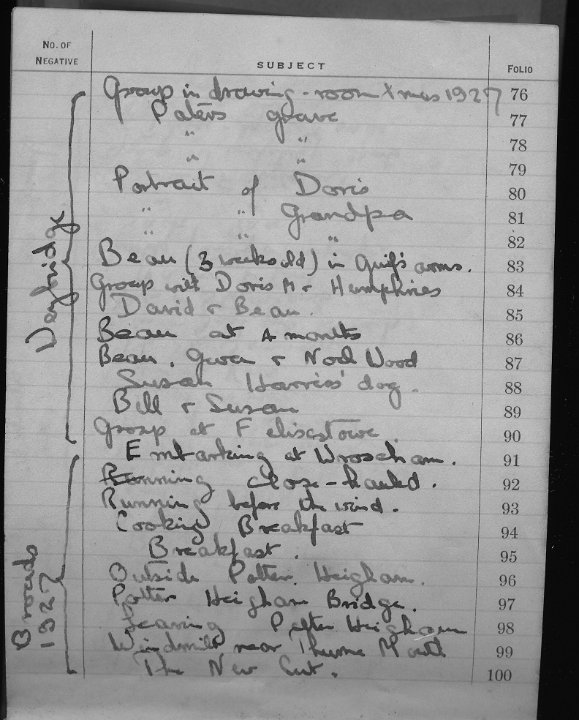 NO. OF NEGATIVE SUBJECT FOLIO
Group in drawing-room Xmas 1927 76
Paters grave 77
" " 78
" " 79
Portrait of Doris 80
" " Grandpa 81
" " " 82
Beau (3 weeks old) in Guif's arms. 83
Group with Doris M & Humphries 84
David & Beau. 85
Beau at 4 months 86
Beau, Gwen & Noel Wood 87
Susan Harris' dog. 88
Bill & Susan 89
Group at Felixstowe. 90
Embarking at Wroxham. 91
Running close-hauled. 92
Running before the wind. 93
Cooking Breakfast 94
Breakfast. 95
Outside Potter Heigham. 96
Potter Heigham Bridge. 97
Leaving Potter Heigham 98
Windmill near Thurne Mouth 99
The New Cut. 100
Weybridge
Broads
1927